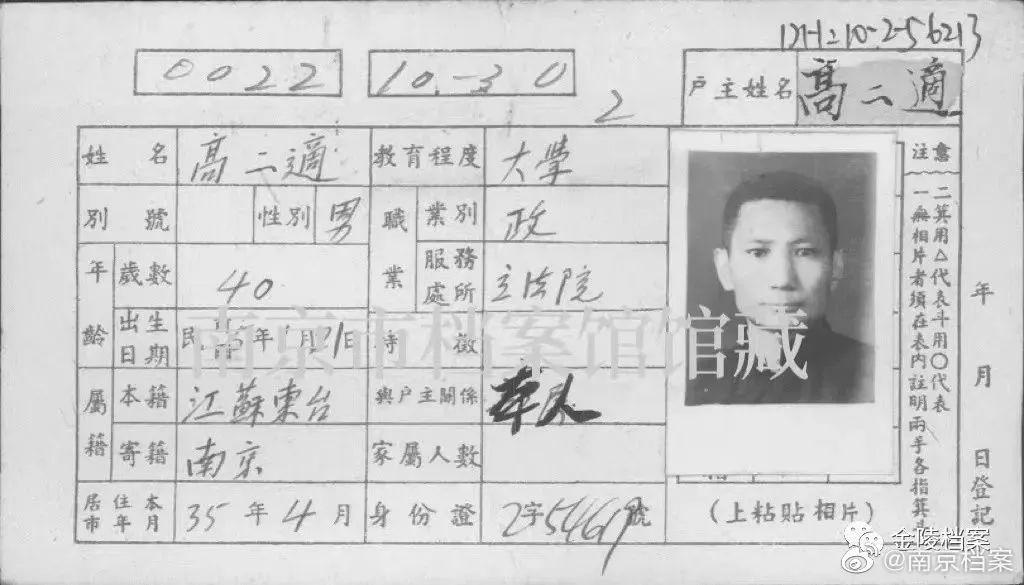 0022
10.-30
2
户主姓名 高二適
姓名 高二適 教育程度 大學
別號 性別 男 職業 業別 政
年齡 歲數 40 服務處所 立法院
出生日期 民 年 月21日 特徵
屬籍 本籍 江蘇東台 與户主關係 本人
寄籍 南京 家屬人數
居住本市年月 35年4月 身份證 號
(上粘貼相片)
注意
一無相片者須在表內註明兩手各指箕斗
二箕用△代表斗用〇代表
年月日登記
南京市档案馆馆藏
金陵档案
@南京档案